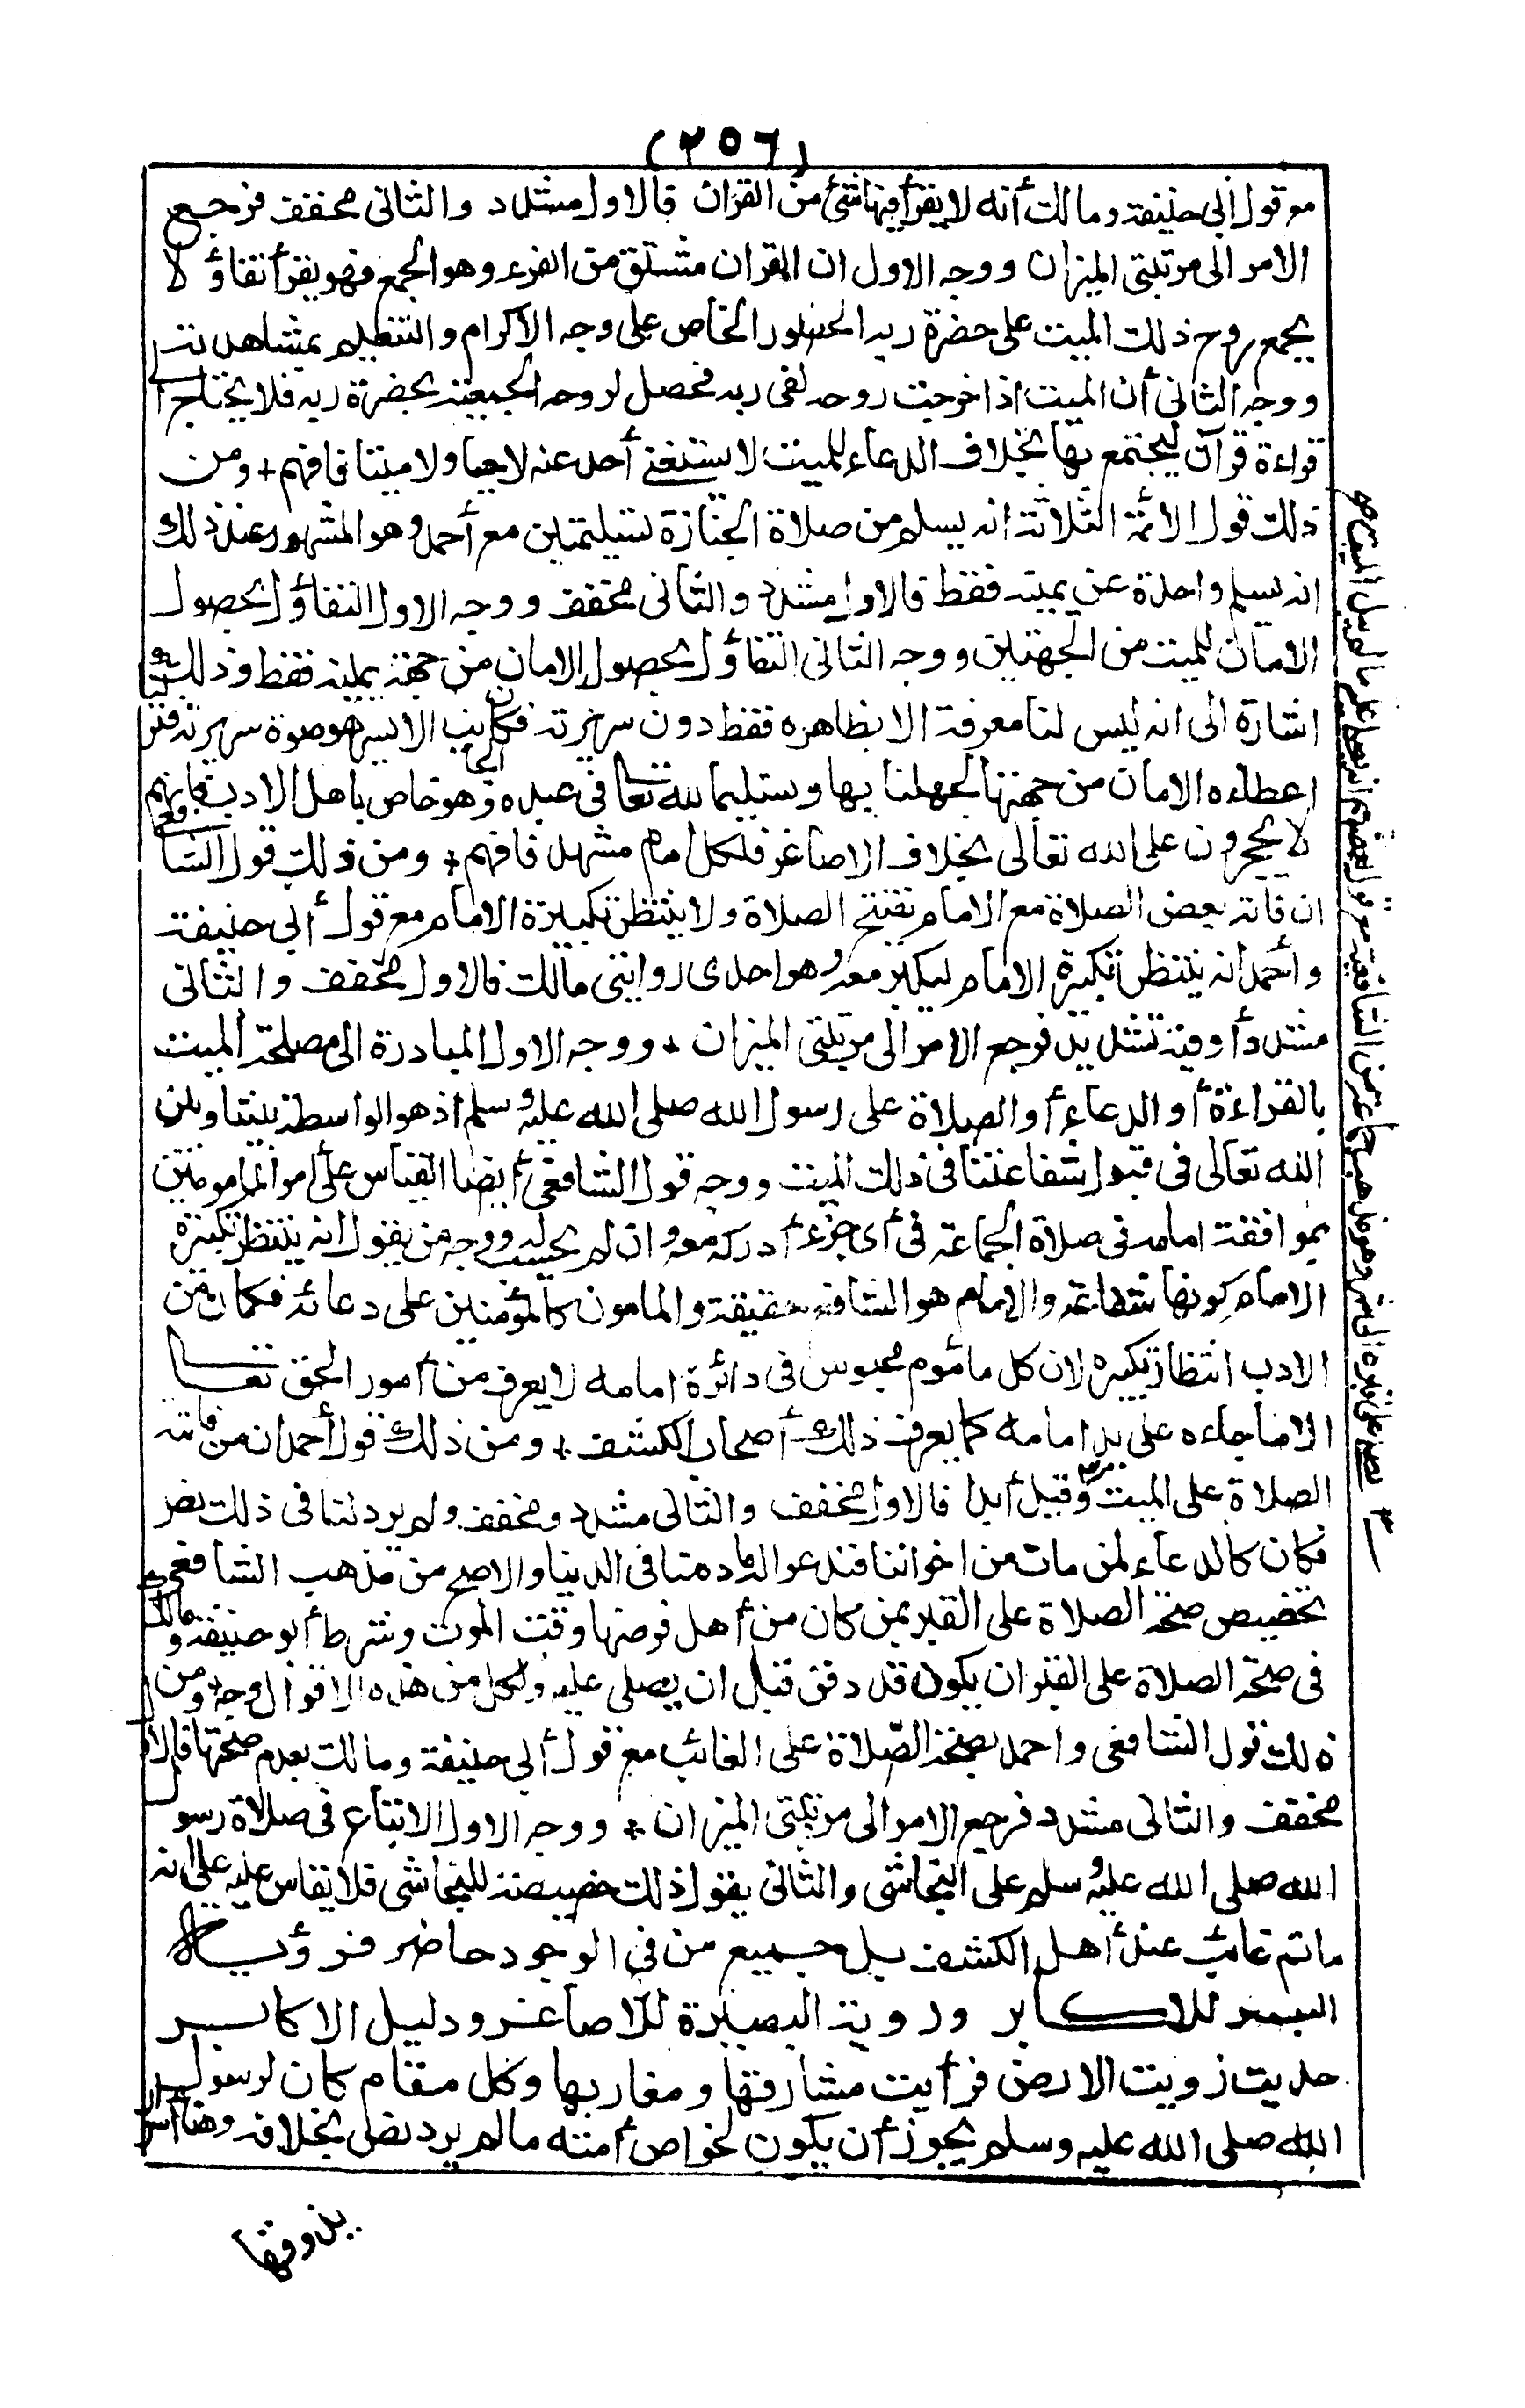 (٢٥٦)
مع قول أبي حنيفة ومالك أنه لا يقرأ فيها شئ من القرآن فالاول مشدد والثاني مخفف فرجع
الامر الى مرتبتي الميزان ووجه الاول ان القرآن مشتق من القرء وهو الجمع فهو يقرأ تفاؤلا
بجمع روح ذلك الميت على حضرة ربه الحضور الخاص على وجه الاكرام والتعظيم بمشاهدته
ووجه الثاني أن الميت اذا خرجت روحه لقى ربه فحصل لروحه الجمعية بحضرة ربه فلا يحتاج الى
قراءة قرآن ليجتمع بها بخلاف الدعاء للميت لا يستغنى أحد عنه لا حيا ولا ميتا فافهم + ومن
ذلك قول الائمة الثلاثة انه يسلم من صلاة الجنازة تسليمتين مع أحمد وهو المشهور عند ذلك
انه يسلم واحدة عن يمينه فقط فالاول مشدد والثاني مخفف ووجه الاول التفاؤل بحصول
الامان للميت من الجهتين ووجه الثاني التفاؤل بحصول الامان من جهة يمينه فقط وذلك
اشارة الى انه ليس لنا معرفة الا بظاهره فقط دون سريرته فكان الجانب الايسر هو صوة سريرته فترك
اعطاءه الامان من جهتها لجهلنا بها وتسليما لله تعالى في عبده وهو خاص باهل الادب فانهم
لا يحجرون على الله تعالى بخلاف الاصاغر فلكل امام مشهد فافهم + ومن ذلك قول الشافعي
ان فاته بعض الصلاة مع الامام يفتتح الصلاة ولا ينتظر تكبيرة الامام مع قول أبي حنيفة
وأحمد انه ينتظر تكبيرة الامام ليكبر معه وهو احدى روايتى مالك فالاول مخفف والثاني
مشدد أو فيه تشديد فرجع الامر الى مرتبتي الميزان + ووجه الاول المبادرة الى مصلحة الميت
بالقراءة أو الدعاء أو الصلاة على رسول الله صلى الله عليه وسلم اذ هو الواسطة بيننا وبين
الله تعالى في قبول شفاعتنا في ذلك الميت ووجه قول الشافعي أيضا القياس على أمر المأمومين
بموافقة امامه في صلاة الجماعة في أى جزء أدركه معه وان لم يحسب له ووجه من يقول انه ينتظر تكبيرة
الامام كونها شفاعة والامام هو الشافع حقيقة والمامون كالمؤمنين على دعائه فكان من
الادب انتظار تكبيره لان كل مأموم محبوس في دائرة امامه لا يعرف من أمور الحق تعالى
الا ما جاءه على يد امامه كما يعرف ذلك أصحاب الكشف + ومن ذلك قول أحمد انه من فاتته
الصلاة على الميت وقيل أبدا فالاول مخفف والثاني مشدد ومخفف ولم يرد لنا في ذلك نص
فكان كالدعاء لمن مات من اخواننا فندعو له مادمنا في الدنيا والاصح من مذهب الشافعي
تخصيص صحة الصلاة على القبر بمن كان من أهل فرضها وقت الموت وشرط أبو حنيفة ومالك
في صحة الصلاة على القبر ان يكون قد دفن قبل ان يصلى عليه ولكل من هذه الاقوال وجه + ومن
ذلك قول الشافعي واحمد بصحة الصلاة على الغائب مع قول أبي حنيفة ومالك بعدم صحتها فالاول
مخفف والثاني مشدد فرجع الامر الى مرتبتي الميزان + ووجه الاول الاتباع في صلاة رسول
الله صلى الله عليه وسلم على النجاشى والثاني يقول ذلك خصيصة للنجاشى فلا يقاس عليه على انه
ما ثم غائب عند أهل الكشف بل جميع من في الوجود حاضر فرؤية
البصر للاكابر ورؤية البصيرة للاصاغر ودليل الاكابر
حديث زويت الارض فرأيت مشارقها ومغاربها وكل مقام كان لرسول
الله صلى الله عليه وسلم يجوز أن يكون لخواص أمته ما لم يرد نص بخلافه وهنا اسرار
يذوقها
يصلى على قبره الى شهر وهو مذهب جماعة من الشافعية مع قول بعضهم انه يصلى عليه ما لم يبل الميت